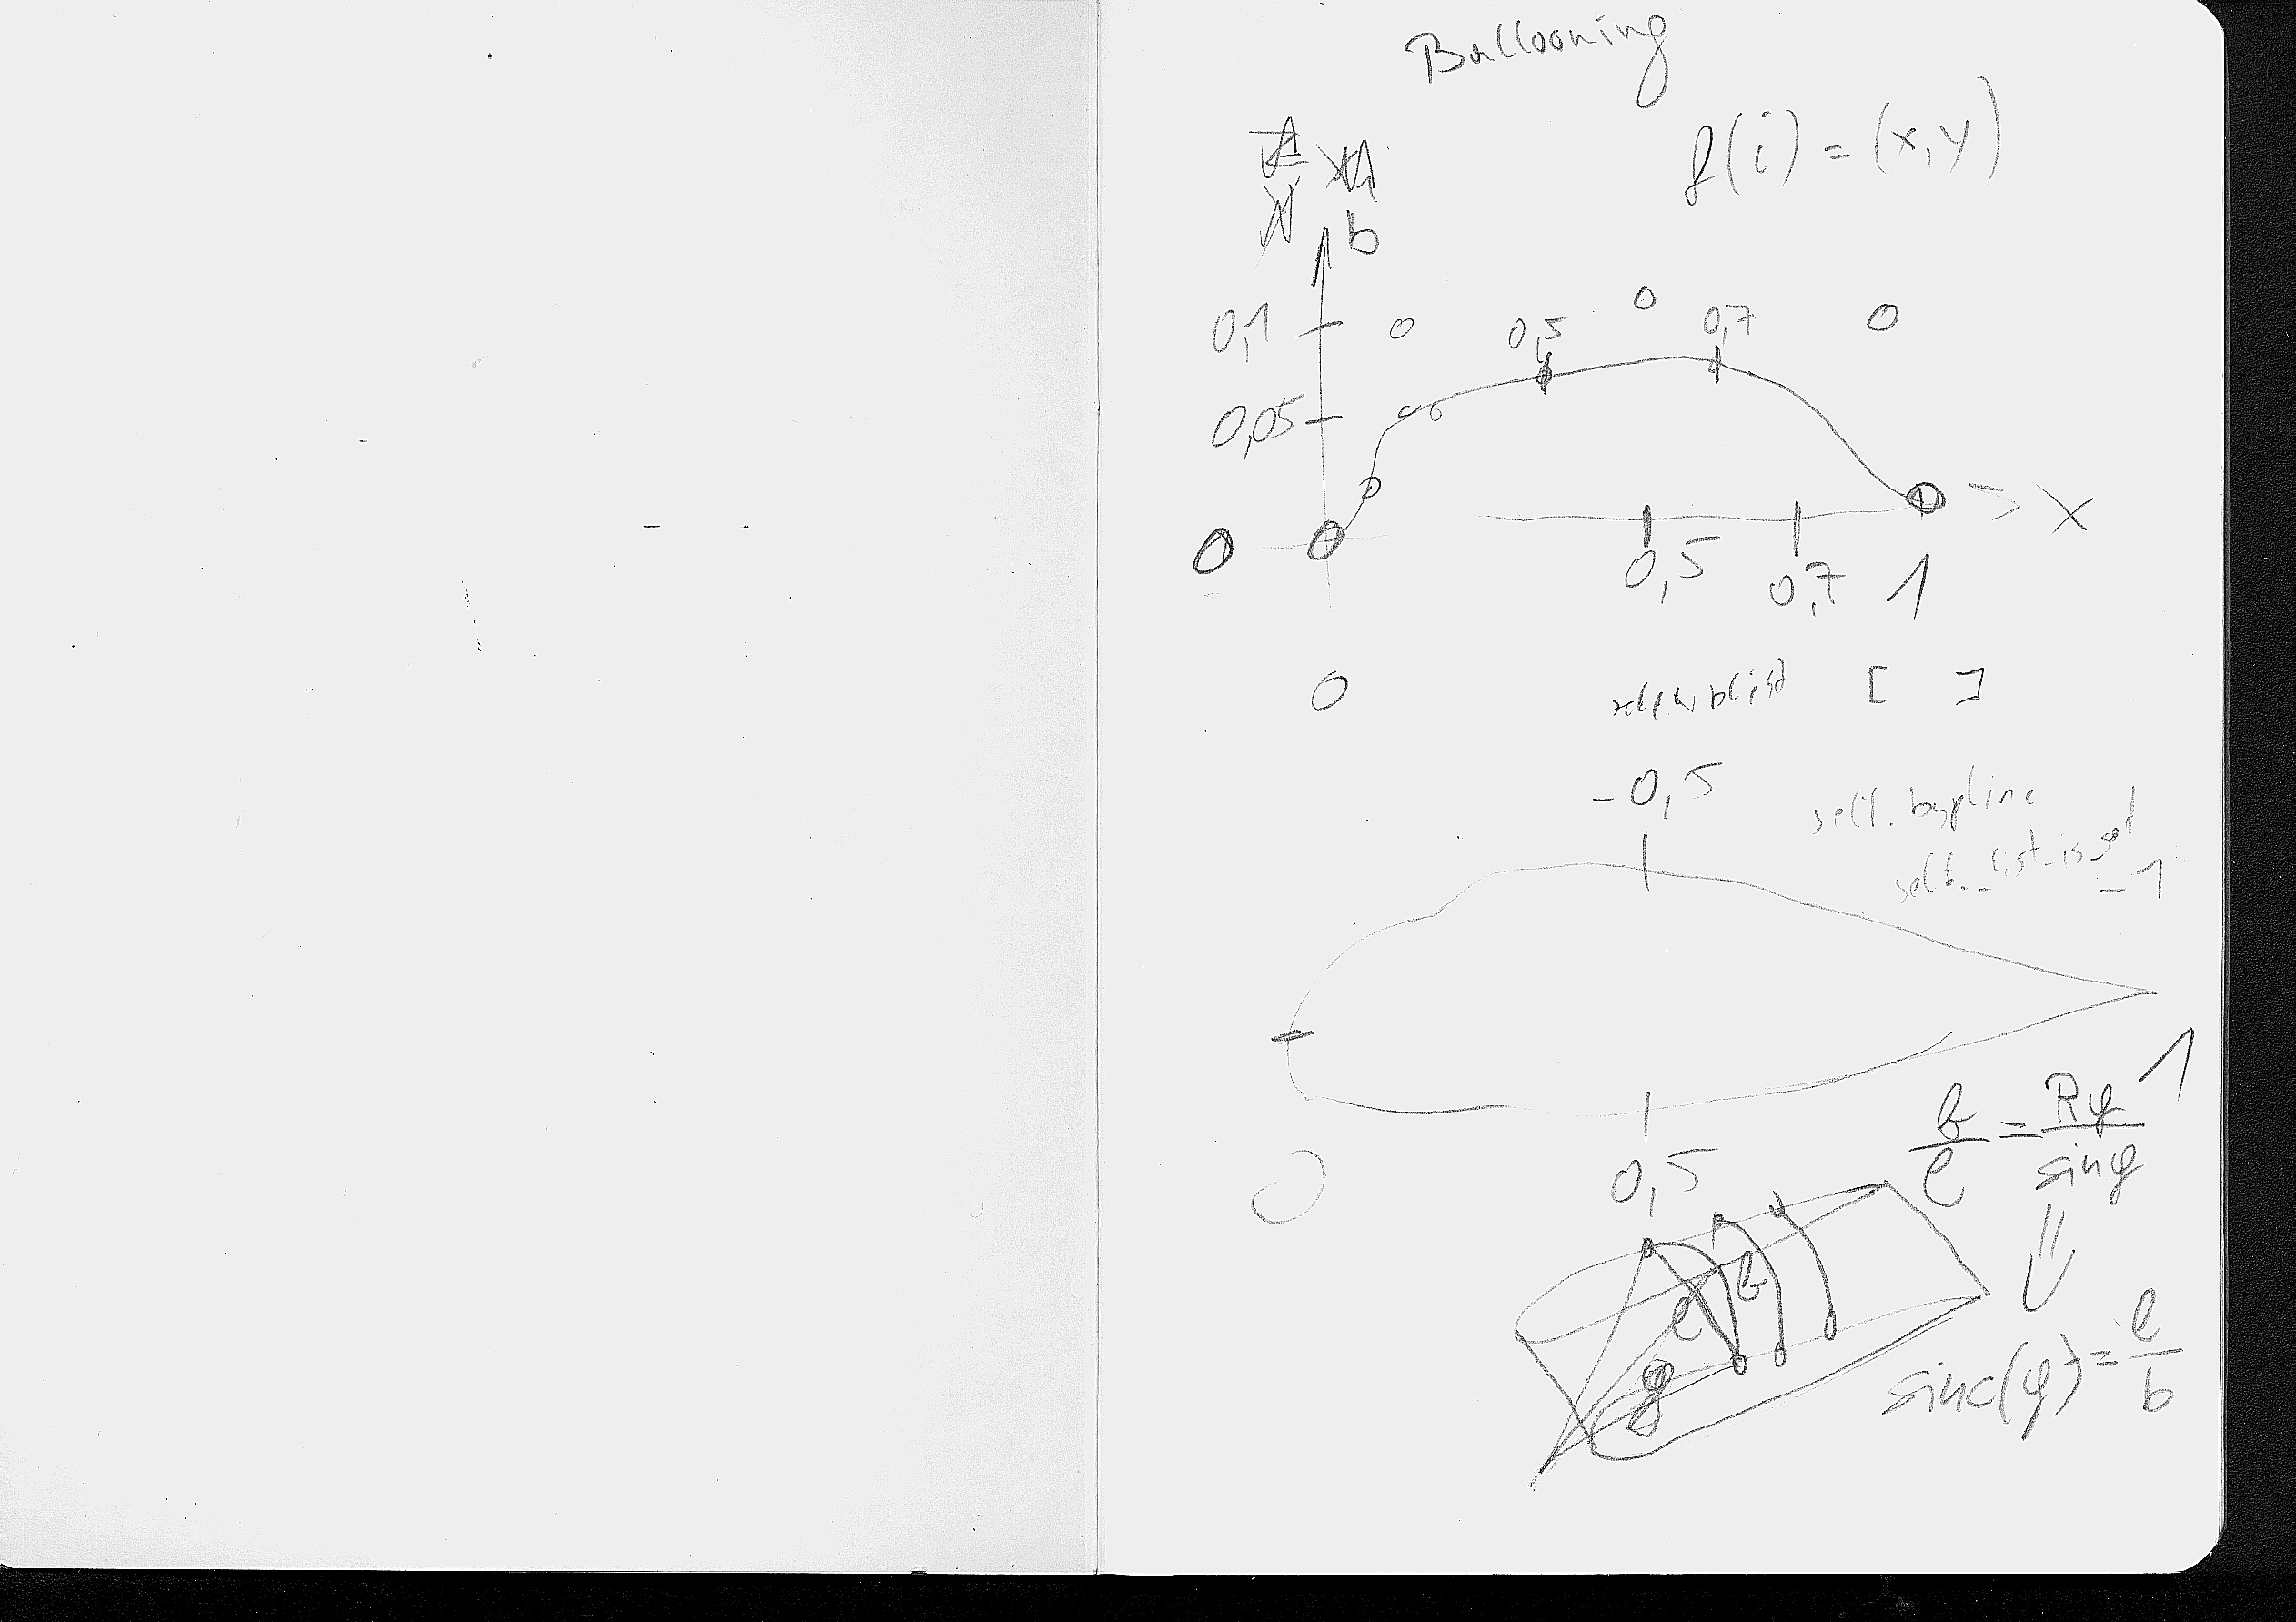 Ballooning
f(i) = (x, y)
b
0,1
0,5
0,7
0,05
0
x
0,5
0,7
1
0
[ ]
-0,5
self.bspline
self._list_is_set
-1
1
b/e = Rφ/sin φ
0,5
b
e
φ
⇓
sinc(φ) = e/b